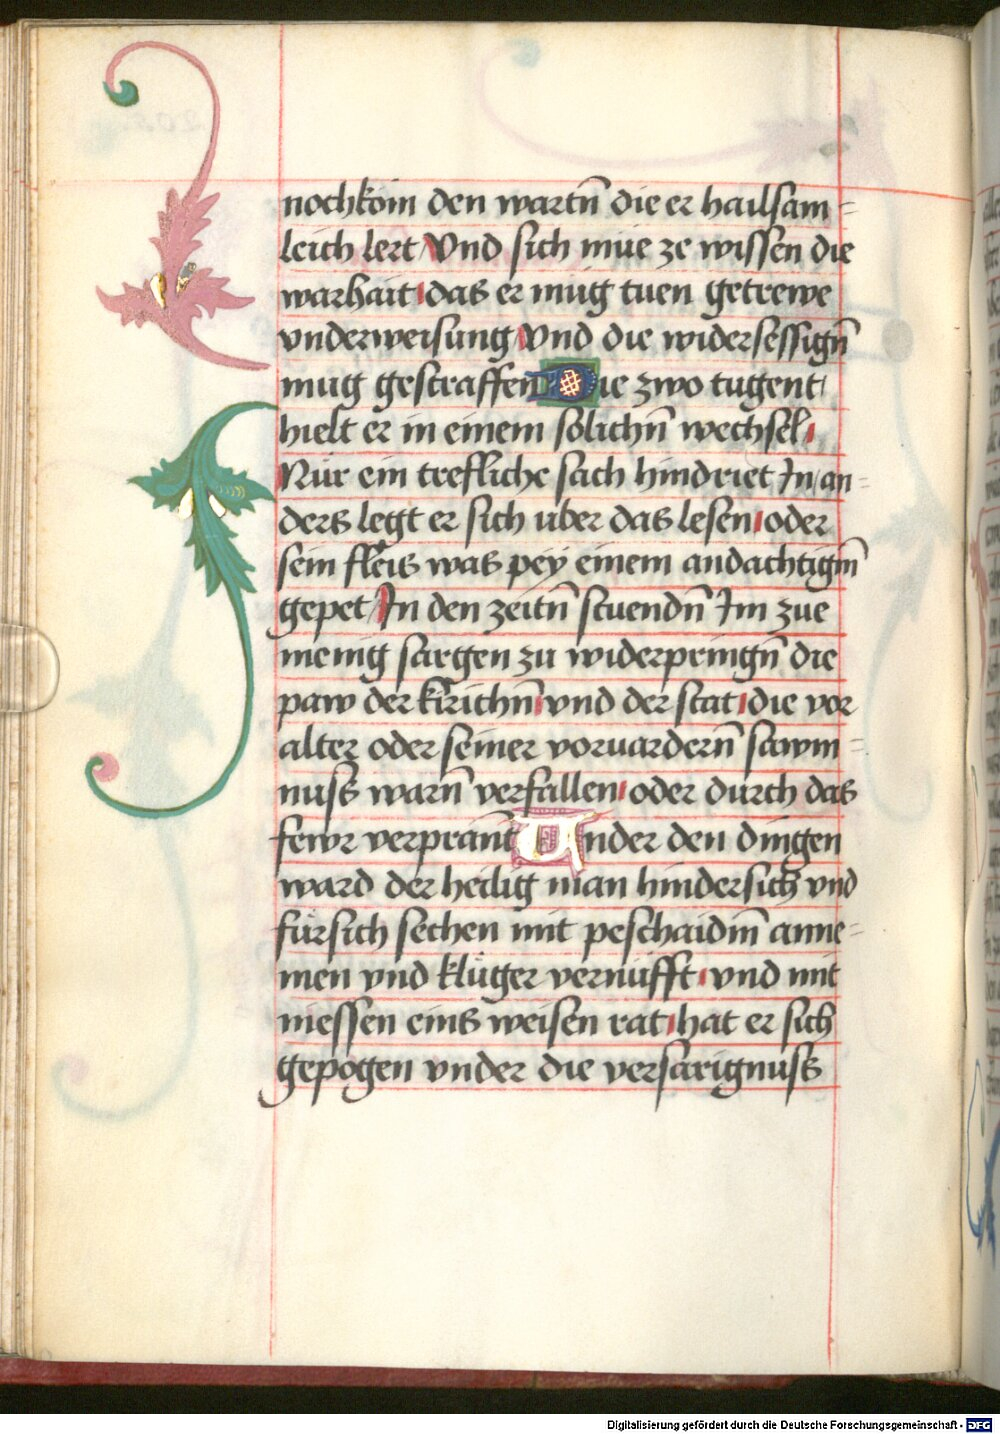 nochköm den wartn̄ die er hailsam=
leich lert Vnd sich müe ze wissen die
warhait das er müg tuen getrewe
vnderweisung Vnd die widersessign̄
mug gestraffen Die zwo tugent
hielt er in einem sölichn̄ wechsel
Nür ein trefliche sach hindriet In an=
ders legt er sich über das lesen oder
sein fleis was pey einem andächtigm̄
gepet In den zeitn̄ stuendn̄ Im zue
menig sorgen zu widerpringn̄ die
paw der kirichn̄ vnd der stat die vor
alter oder seiner voruardern̄ sawm=
nuss warn̄ verfallen oder durch das
fewr verprant̄ Vnder den dingen
ward der heilig man hindersich vnd
fürsich sechen mit peschaidm̄ anne=
men vnd klüger vernüfft vnd mit
messen eins weisen rat hat er sich
gepogen vnder die versarignuss
Digitalisierung gefördert durch die Deutsche Forschungsgemeinschaft - DFG